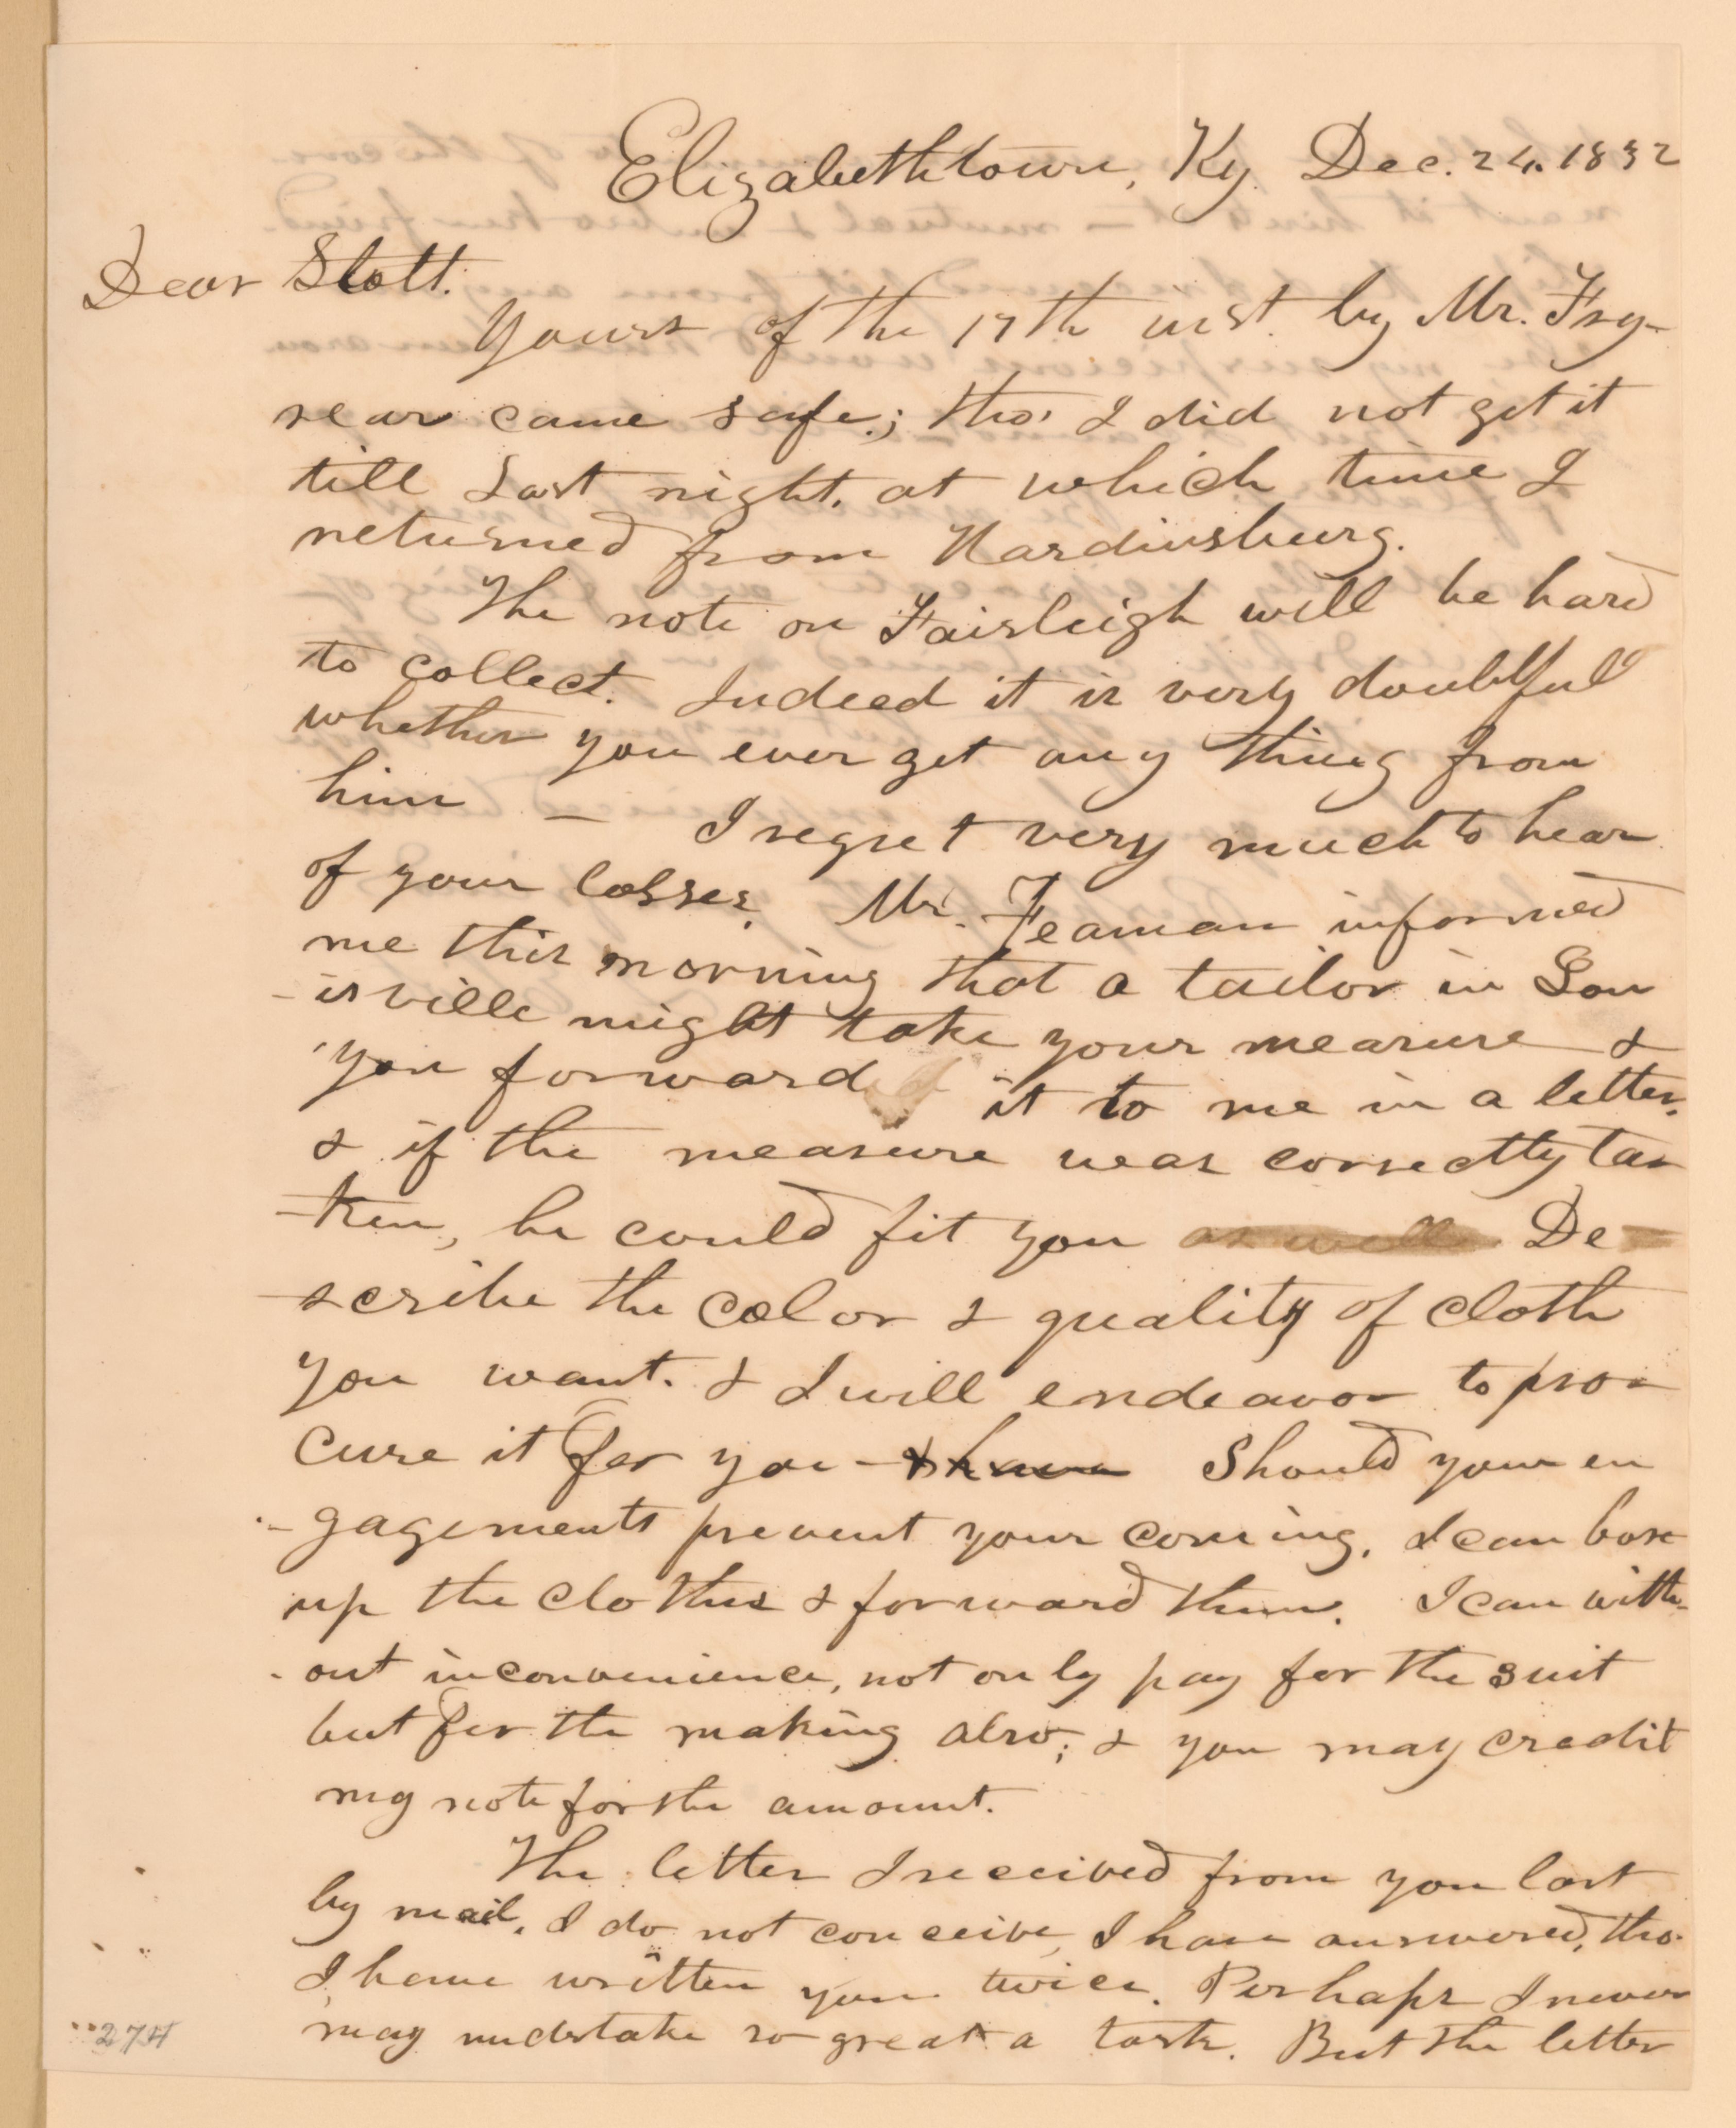 Elizabethtown, Ky. Dec. 24. 1832
Dear Stott.
Yours of the 17th inst. by Mr. Fry-
rear came safe; tho' I did not get it
till last night, at which time I
returned from Hardinsburg.
The note on Fairleigh will be hard
to collect. Indeed it is very doubtful
whether you ever get any thing from
him — I regret very much to hear
of your losses. Mr. Feaman informed
me this morning that a tailor in Lou
-isville might take your measure &
you forward it to me in a letter,
& if the measure was correctly ta-
-ken, he could fit you as well. De
-scribe the color & quality of cloth
you want. & I will endeavor to pro-
cure it for you — & have Should your en
-gagements prevent your coming, I can box
up the clothes & forward them. I can with-
-out inconvenience, not only pay for the suit
but for the making also; & you may credit
my note for the amount.
The letter I received from you last
by mail, I do not conceive, I have answered, tho.
I have written you twice. Perhaps I never
may undertake so great a task. But the letter
274